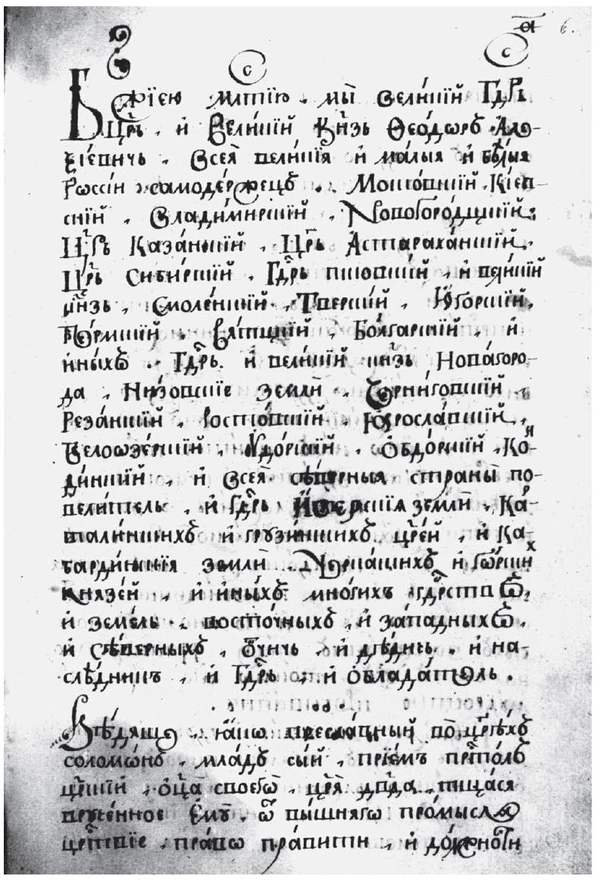 а҃ 6.
Бж҃їею млⷭ҇тїю . мы̀ вели́кїй гдⷭ҇рь
црь . и вели́кїй кн҃зь Ѳео́доръ Але-
ѯі́евичь . всея̀ вели́кїя и ма́лыя и бѣ́лыя
Россі́и самоде́ржецъ . Моско́вскїй . Кі́ев-
скїй . Влади́мирскїй . Новогоро́дцкїй .
Црь Каза́нскїй . Црь Астараха́нскїй .
Црь Сиби́рскїй . Гдⷭ҇рь пско́вскїй . и вели́кїй
кн҃зь . Смоле́нскїй . Тве́рскїй . Ю́горскїй .
Пе́рмскїй . Вя́тцкїй . Болга́рскїй . и
и́ныхъ . Гдⷭ҇рь . и вели́кїй кн҃зь Нова́горо-
да . Ни́зовскїе землѝ . Черни́говскїй .
Реза́нскїй . Росто́вскїй . Яросла́вскїй .
Белоѡзе́рскїй . Удо́рскїй . Обдо́рскїй . Ко-
ди́нскїй . и всея̀ сѣ́верныя страны̀ по-
вели́тель . и Гдⷭ҇рь И́верскїя землѝ . Ка-
рталинскихъ и грузи́нскихъ царе́й . и Ка-
барди́нскїя землѝ . Черка́скихъ и Го́рски
князе́й . и ины́хъ мно́гихъ гдⷭ҇рствъ .
и земе́ль . восто́чныхъ . и за́падныхъ .
и сѣ́верныхъ . ѻ҆́тчичь . и дѣ́дичь . и на-
слѣ́дникъ . и Гдⷭ҇рь . и облада́тель .
Вѣ́дяще . ꙗ҆́кѡ пресла́вный во црѣ́хъ
соломо́нъ . мла́дъ сы́й . прїе́мъ прⷭ҇то́лъ
црⷭ҇кїй . ѻ҆ц҃а̀ своегѡ̀ . цр҃я̀ дв҃да . тща́ся
врꙋче́нное є҆мꙋ̀ . ѿ вы́шнягѡ про́мысла
црⷭ҇твїе . пра́вѡ пра́вити . и